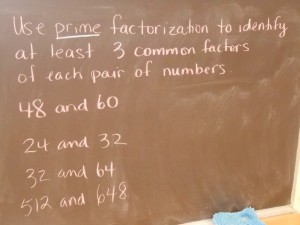 Use prime factorization to identify
at least 3 common factors
of each pair of numbers.
48 and 60
24 and 32
32 and 64
512 and 648